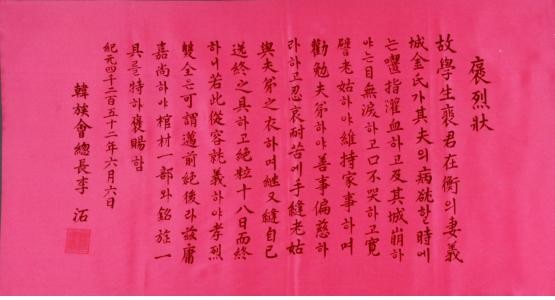 褒烈狀
故學生裵君在衡의妻義
城金氏가其夫의病欲한時에
는囓指灌血하고及其城崩하
야는目無淚하고口不哭하고寬
譬老姑하야維持家事하며
勸勉夫弟하야善事偏慈하
라하고忍哀耐苦에手縫老姑
與夫弟之衣하며繼又縫自己
送終之具하고絶粒十八日而終
하니若此從容就義하야孝烈
雙全은可謂邁前絶後라玆庸
嘉尙하야棺材一部와銘旌一
具를特히褒賜함
紀元四千二百五十二年六月六日
韓族會總長李沰